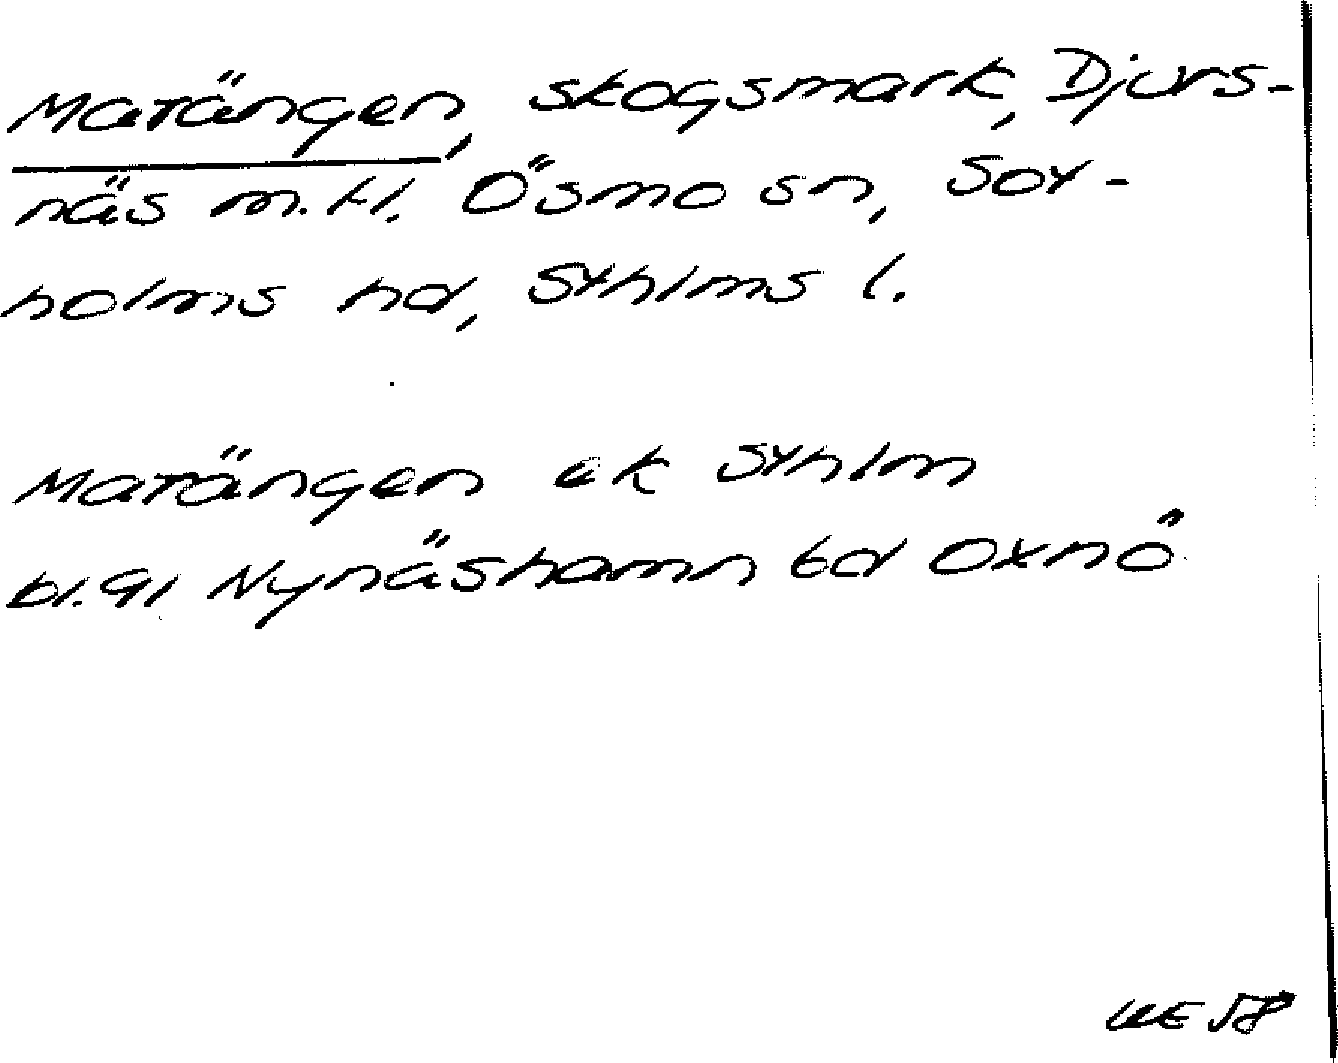 Matängen, skogsmark, Djurs-
näs m.fl. Ösmo sn, Sot-
holms hd, Sthlms l.
Matängen ek Sthlm
bl. 91 Nynäshamn 6d Oxnö
58